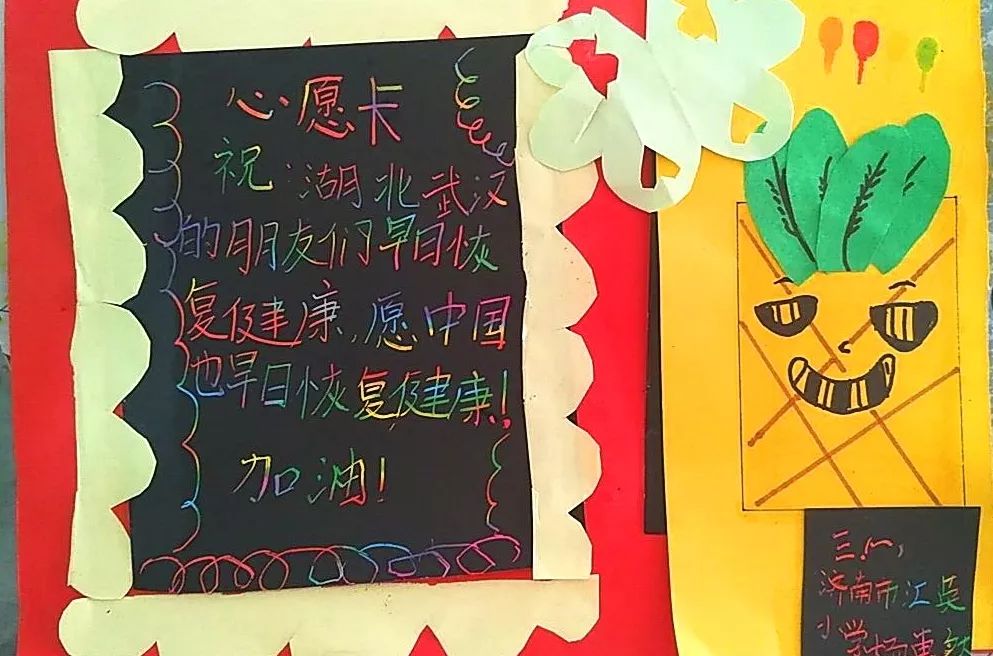 心愿卡
祝湖北武汉
的朋友们早日恢
复健康,愿中国
也早日恢复健康!
加油!
济南市汇吴
小学